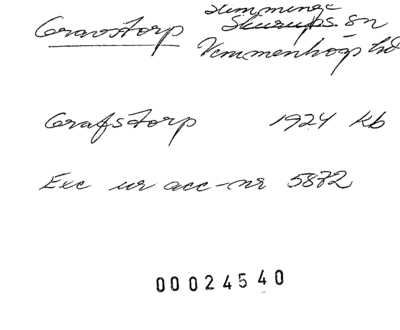 Slimminge
Gravstorp Skurups sn
Vemmenhögs hd
Grafstorp 1924 kb
Exc ur acc-nr 5872
00024540